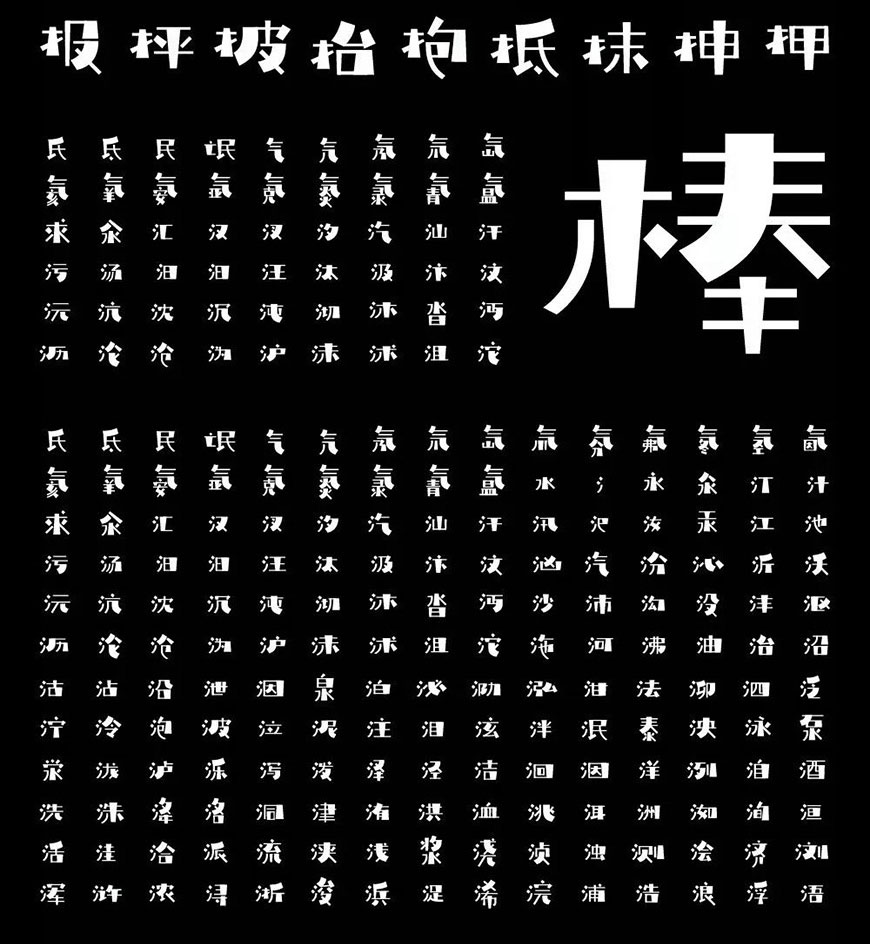 报 抨 披 抬 抱 抵 抹 抻 押
氏 氐 民 氓 气 氕 氖 氘 氙
棒
氦 氧 氨 氩 氪 氮 氯 氰 氲
求 汆 汇 汉 汊 汐 汽 汕 汗
污 汤 汩 汨 汪 汰 汲 汴 汶
沅 沆 沈 沉 沌 沏 沐 沓 沔
沥 沦 沧 沩 沪 沫 沭 沮 沱
氏 氐 民 氓 气 氕 氖 氘 氙 氚 氛 氟 氡 氢 氤
氦 氧 氨 氩 氪 氮 氯 氰 氲 水 氵 永 氽 汀 汁
求 汆 汇 汉 汊 汐 汽 汕 汗 汛 汜 汝 汞 江 池
污 汤 汩 汨 汪 汰 汲 汴 汶 汹 汽 汾 沁 沂 沃
沅 沆 沈 沉 沌 沏 沐 沓 沔 沙 沛 沟 没 沣 沤
沥 沦 沧 沩 沪 沫 沭 沮 沱 沲 河 沸 油 治 沼
沽 沾 沿 泄 泅 泉 泊 泌 泐 泓 泔 法 泖 泗 泛
泞 泠 泡 波 泣 泥 注 泪 泫 泮 泯 泰 泱 泳 泵
泶 泷 泸 泺 泻 泼 泽 泾 洁 洄 洇 洋 洌 洎 洒
洗 洙 洚 洛 洞 津 洧 洪 洫 洮 洱 洲 洳 洵 洹
活 洼 洽 派 流 浃 浅 浆 浇 浈 浊 测 浍 济 浏
浑 浒 浓 浔 浙 浚 浜 浞 浠 浣 浦 浩 浪 浮 浯